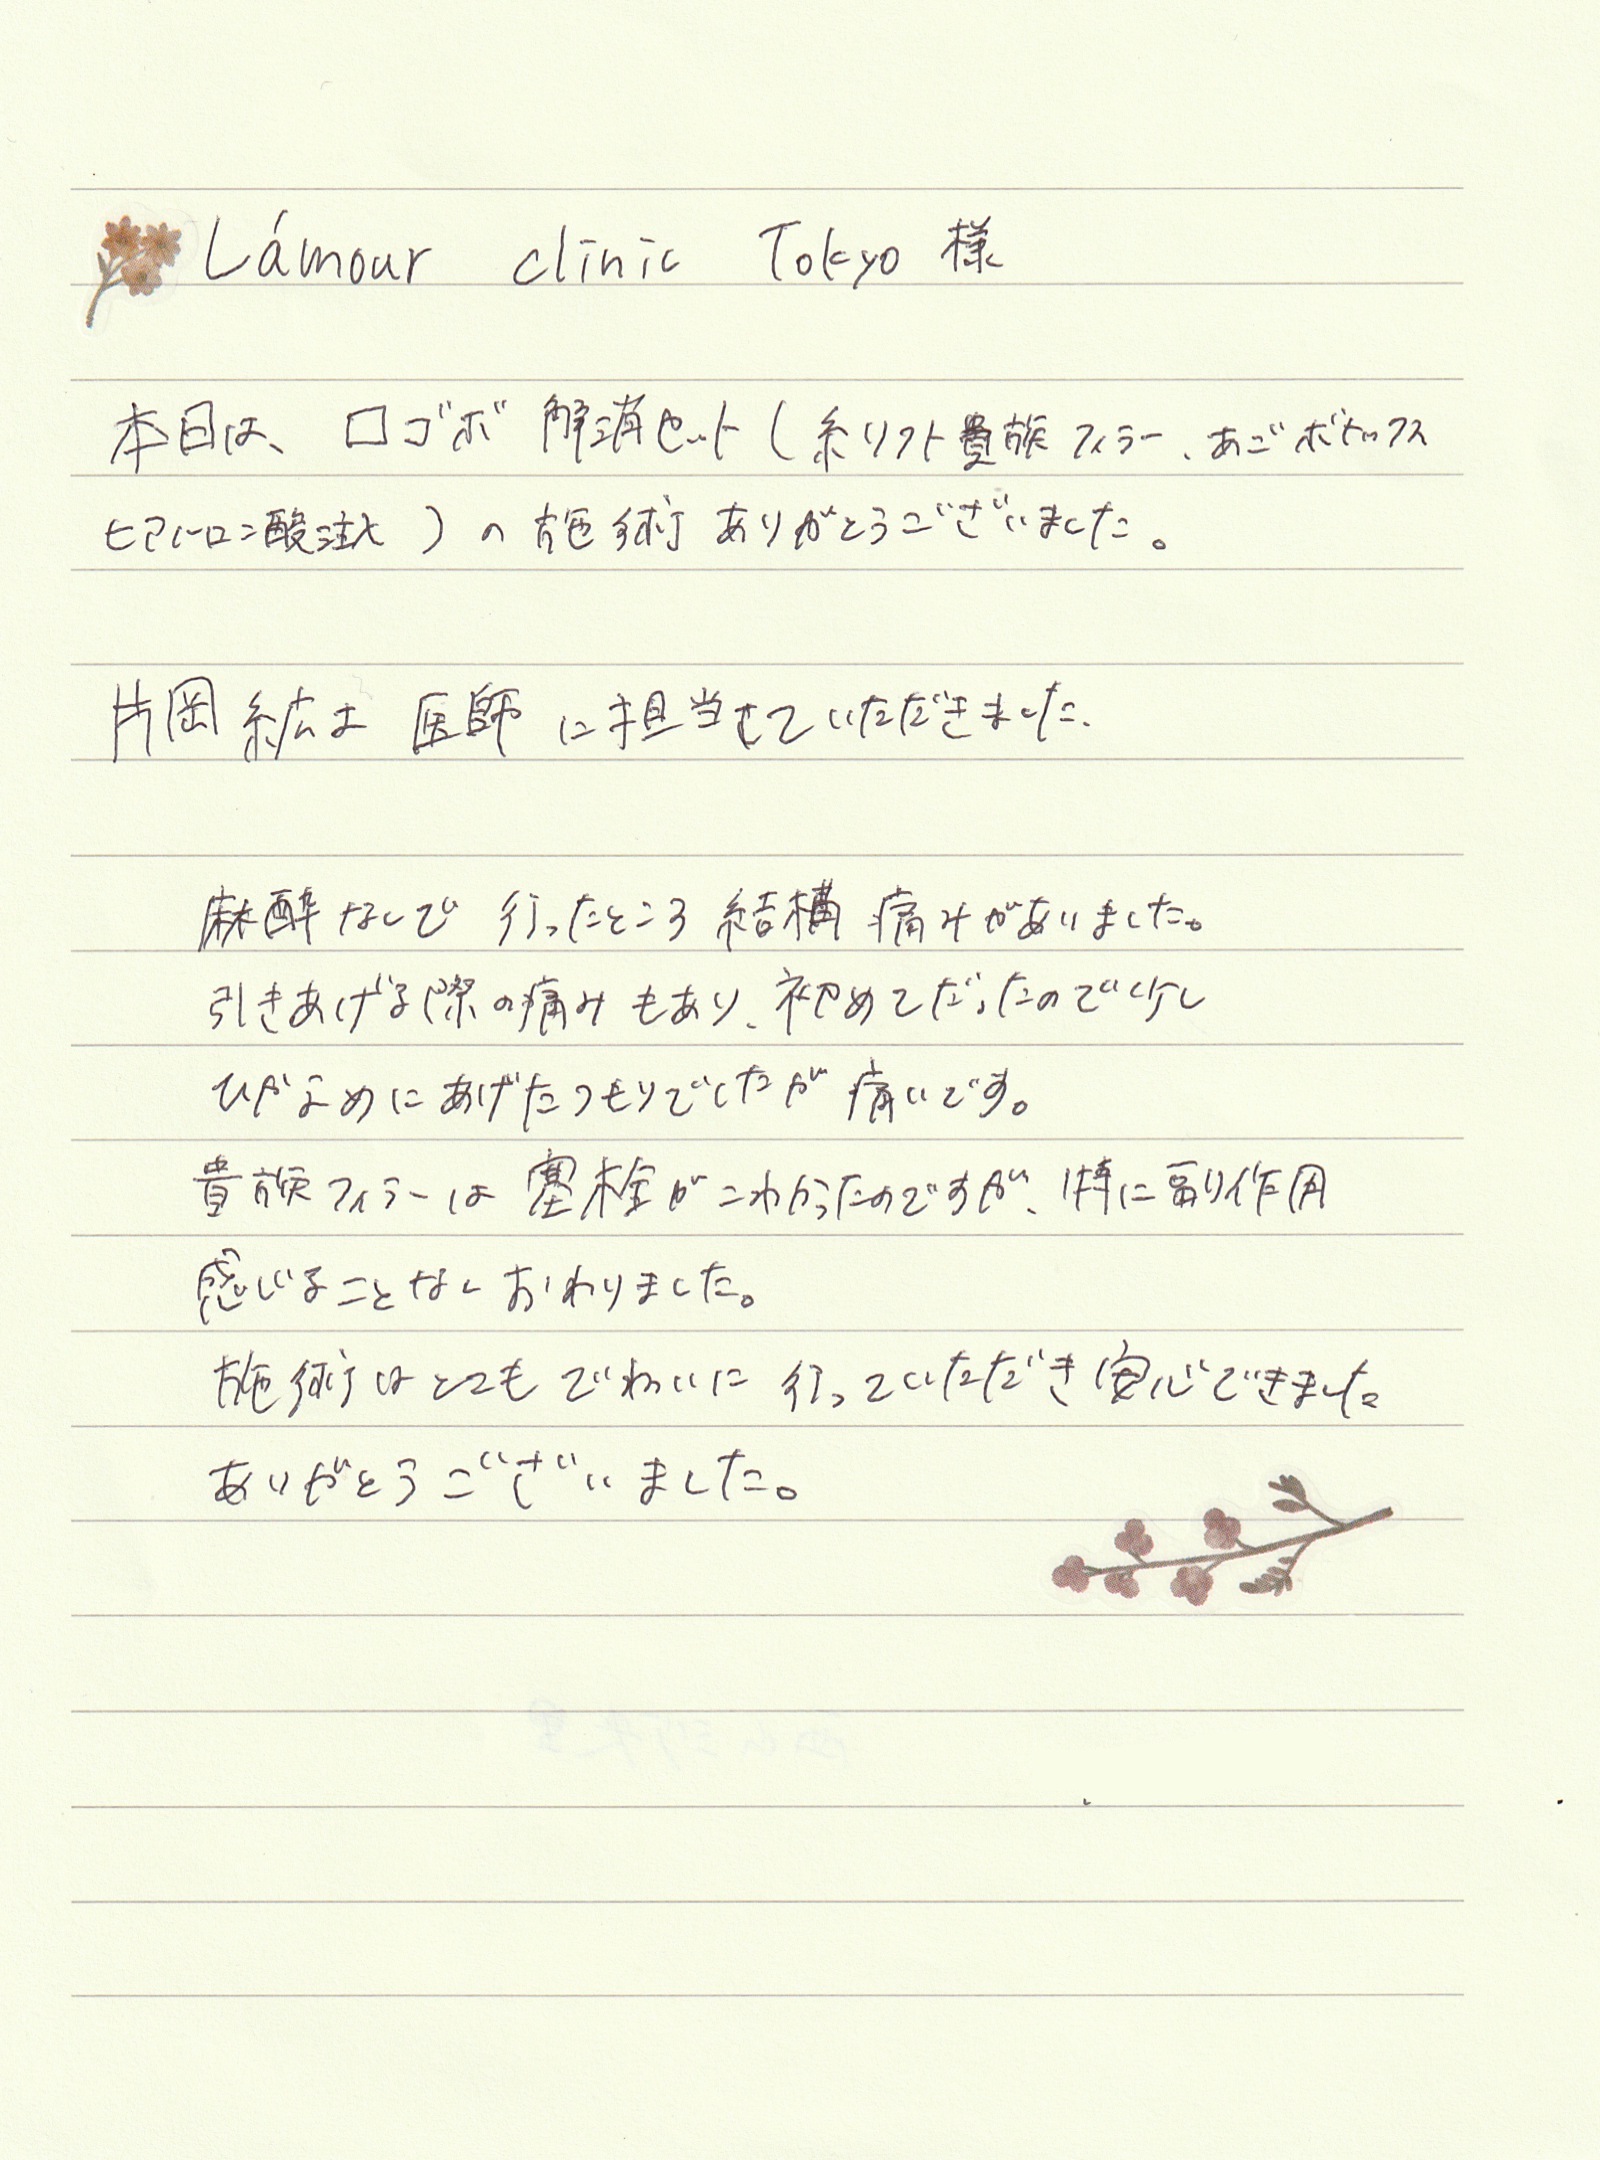 Lámour clinic Tokyo 様
本日は、口ゴボ解消セット(糸リフト貴族フィラー、あごボトックス
ヒアルロン酸注入)の施術ありがとうございました。
片岡 紘士 医師に担当していただきました。
麻酔なしで行ったところ結構痛みがありました。
引きあげる際の痛みもあり、初めてだったので少し
ひかえめにあげたつもりでしたが痛いです。
貴族フィラーは塞栓がこわかったのですが、特に副作用
感じることなしおわりました。
施術はとてもていねいに行っていただき安心できました。
ありがとうございました。